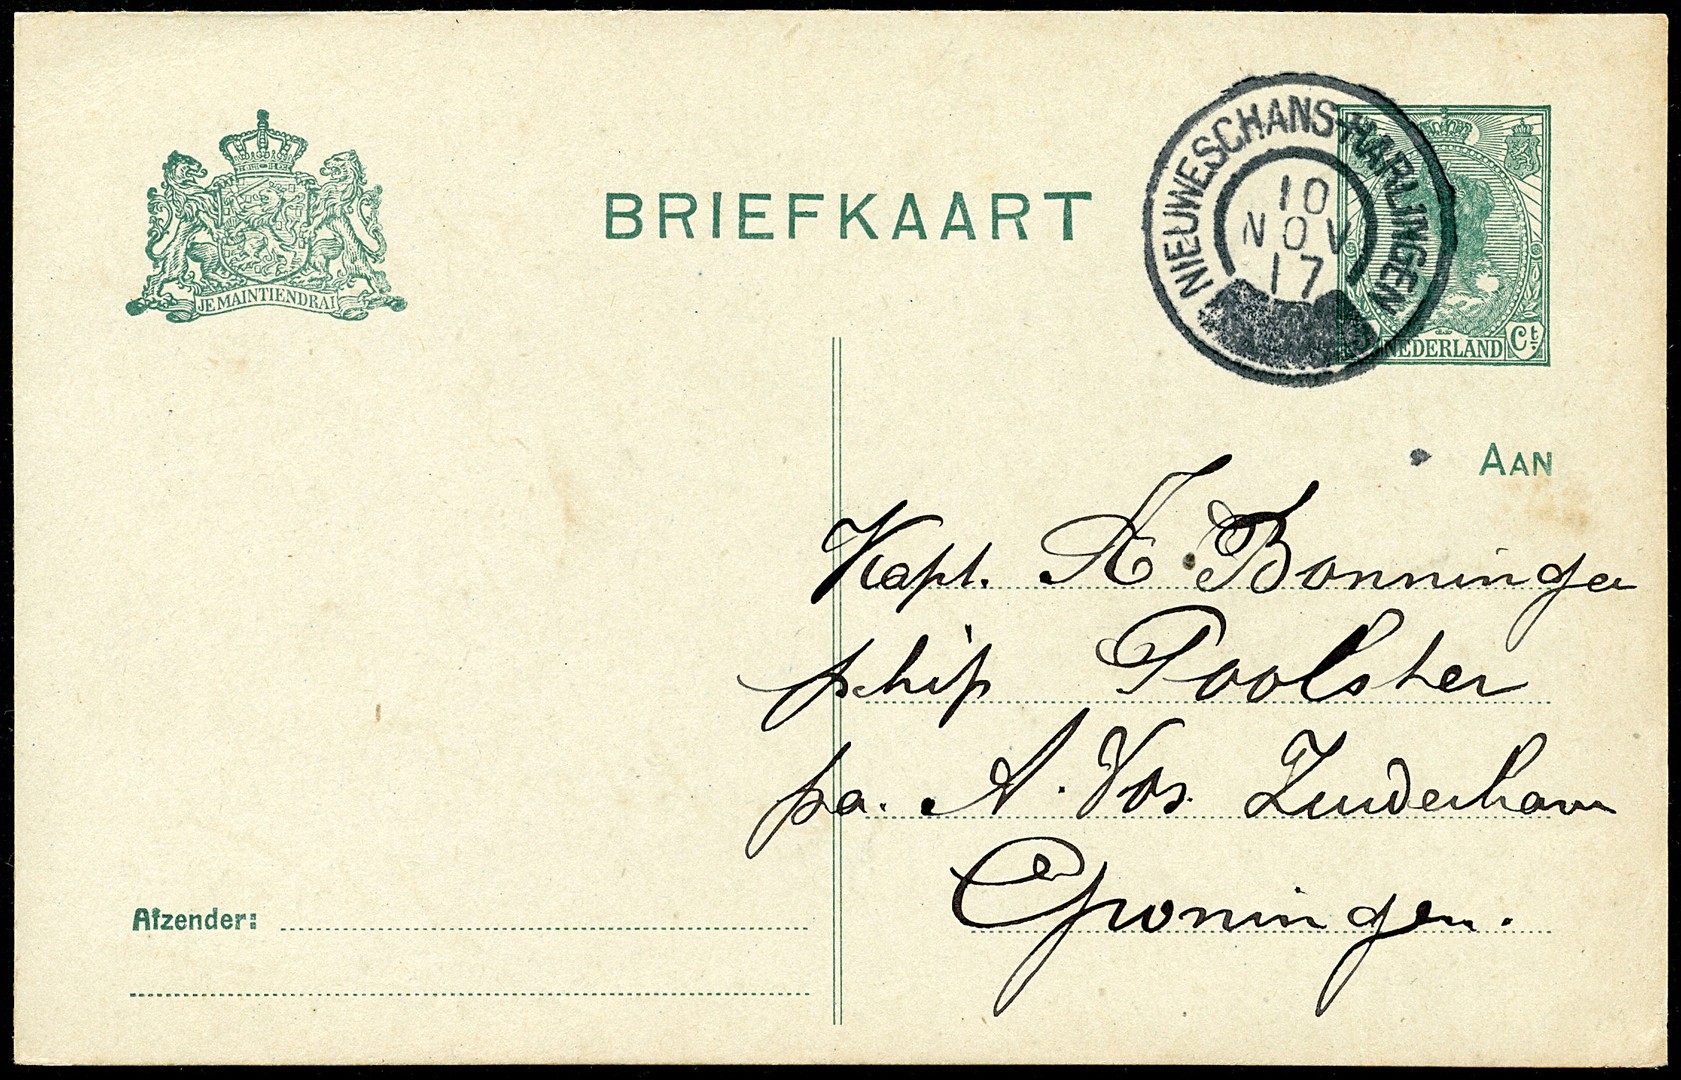 JE MAINTIENDRAI
BRIEFKAART
NIEUWESCHANS-HARLINGEN
10
NOV
17
NEDERLAND Ct
AAN
Kapt. A. Bonninga
schip Poolster
pa. A. Vos. Zuiderhaven
Groningen.
Afzender: